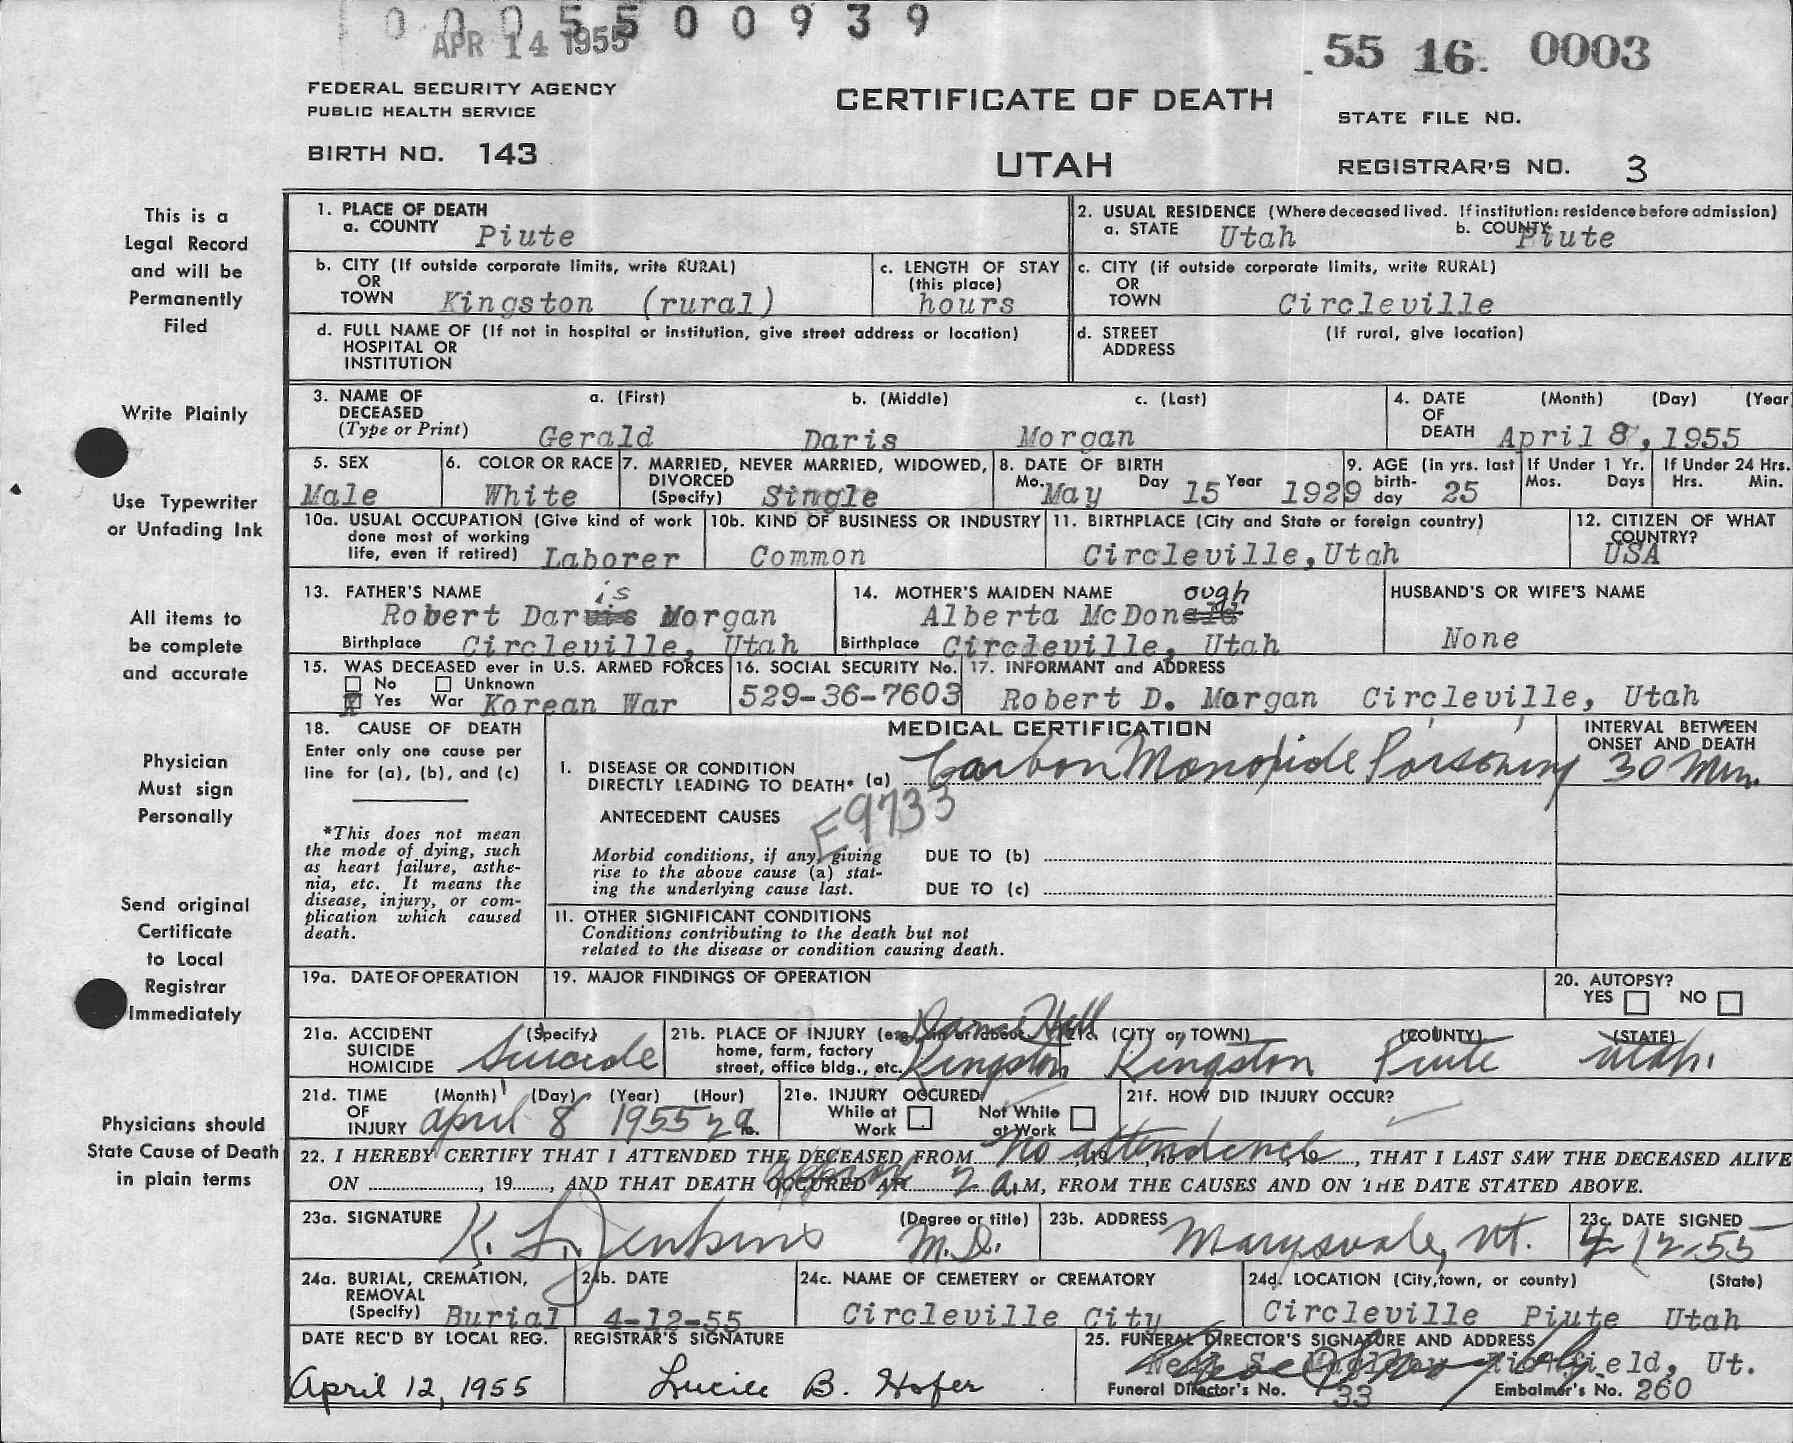 0005500939
APR 14 1955
55 16. 0003
FEDERAL SECURITY AGENCY
PUBLIC HEALTH SERVICE
CERTIFICATE OF DEATH
STATE FILE NO.
BIRTH NO. 143
UTAH
REGISTRAR'S NO. 3
This is a
Legal Record
and will be
Permanently
Filed
Write Plainly
Use Typewriter
or Unfading Ink
All items to
be complete
and accurate
Physician
Must sign
Personally
Send original
Certificate
to Local
Registrar
Immediately
Physicians should
State Cause of Death
in plain terms
1. PLACE OF DEATH
a. COUNTY Piute
2. USUAL RESIDENCE (Where deceased lived. If institution: residence before admission)
a. STATE Utah b. COUNTY Piute
b. CITY (If outside corporate limits, write RURAL)
OR
TOWN Kingston (rural)
c. LENGTH OF STAY
(this place)
hours
c. CITY (if outside corporate limits, write RURAL)
OR
TOWN Circleville
d. FULL NAME OF (If not in hospital or institution, give street address or location)
HOSPITAL OR
INSTITUTION
d. STREET (If rural, give location)
ADDRESS
3. NAME OF a. (First) b. (Middle) c. (Last)
DECEASED
(Type or Print) Gerald Daris Morgan
4. DATE (Month) (Day) (Year
OF
DEATH April 8, 1955
5. SEX
Male
6. COLOR OR RACE
White
7. MARRIED, NEVER MARRIED, WIDOWED,
DIVORCED
(Specify) Single
8. DATE OF BIRTH
Mo. May Day 15 Year 1929
9. AGE (in yrs. last
birth-
day 25
If Under 1 Yr.
Mos. Days
If Under 24 Hrs.
Hrs. Min.
10a. USUAL OCCUPATION (Give kind of work
done most of working
life, even if retired) Laborer
10b. KIND OF BUSINESS OR INDUSTRY
Common
11. BIRTHPLACE (City and State or foreign country)
Circleville, Utah
12. CITIZEN OF WHAT
COUNTRY?
USA
13. FATHER'S NAME
is
Robert Darvis Morgan
Birthplace Circleville, Utah
14. MOTHER'S MAIDEN NAME
ough
Alberta McDonald
Birthplace Circleville, Utah
HUSBAND'S OR WIFE'S NAME
None
15. WAS DECEASED ever in U.S. ARMED FORCES
No Unknown
X Yes War Korean War
16. SOCIAL SECURITY No.
529-36-7603
17. INFORMANT and ADDRESS
Robert D. Morgan Circleville, Utah
18. CAUSE OF DEATH
Enter only one cause per
line for (a), (b), and (c)
*This does not mean
the mode of dying, such
as heart failure, asthe-
nia, etc. It means the
disease, injury, or com-
plication which caused
death.
MEDICAL CERTIFICATION
I. DISEASE OR CONDITION
DIRECTLY LEADING TO DEATH* (a) Carbon Monoxide Poisoning
E9733
ANTECEDENT CAUSES
Morbid conditions, if any, giving
rise to the above cause (a) stat-
ing the underlying cause last.
DUE TO (b)
DUE TO (c)
II. OTHER SIGNIFICANT CONDITIONS
Conditions contributing to the death but not
related to the disease or condition causing death.
INTERVAL BETWEEN
ONSET AND DEATH
30 Min.
19a. DATE OF OPERATION
19. MAJOR FINDINGS OF OPERATION
20. AUTOPSY?
YES NO
21a. ACCIDENT (Specify)
SUICIDE
HOMICIDE Suicide
21b. PLACE OF INJURY (e.g., in or about
home, farm, factory
street, office bldg., etc.
Dance Hall
Kingston
21c. (CITY or TOWN) (COUNTY) (STATE)
Kingston Piute Utah.
21d. TIME (Month) (Day) (Year) (Hour)
OF
INJURY April 8 1955 2 a m.
21e. INJURY OCCURED
While at Work
Not While at Work
21f. HOW DID INJURY OCCUR?
22. I HEREBY CERTIFY THAT I ATTENDED THE DECEASED FROM No attendence, 19, THAT I LAST SAW THE DECEASED ALIVE
ON, 19, AND THAT DEATH OCCURED AT approx 2 a.M, FROM THE CAUSES AND ON THE DATE STATED ABOVE.
23a. SIGNATURE (Degree or title)
K. L. Jenkins M.D.
23b. ADDRESS
Marysvale, Ut.
23c. DATE SIGNED
4-12-55
24a. BURIAL, CREMATION,
REMOVAL
(Specify) Burial
24b. DATE
4-12-55
24c. NAME OF CEMETERY or CREMATORY
Circleville City
24d. LOCATION (City, town, or county) (State)
Circleville Piute Utah
DATE REC'D BY LOCAL REG.
April 12, 1955
REGISTRAR'S SIGNATURE
Lucile B. Hofer
25. FUNERAL DIRECTOR'S SIGNATURE AND ADDRESS
Richfield, Ut.
Funeral Director's No. 33 Embalmer's No. 260